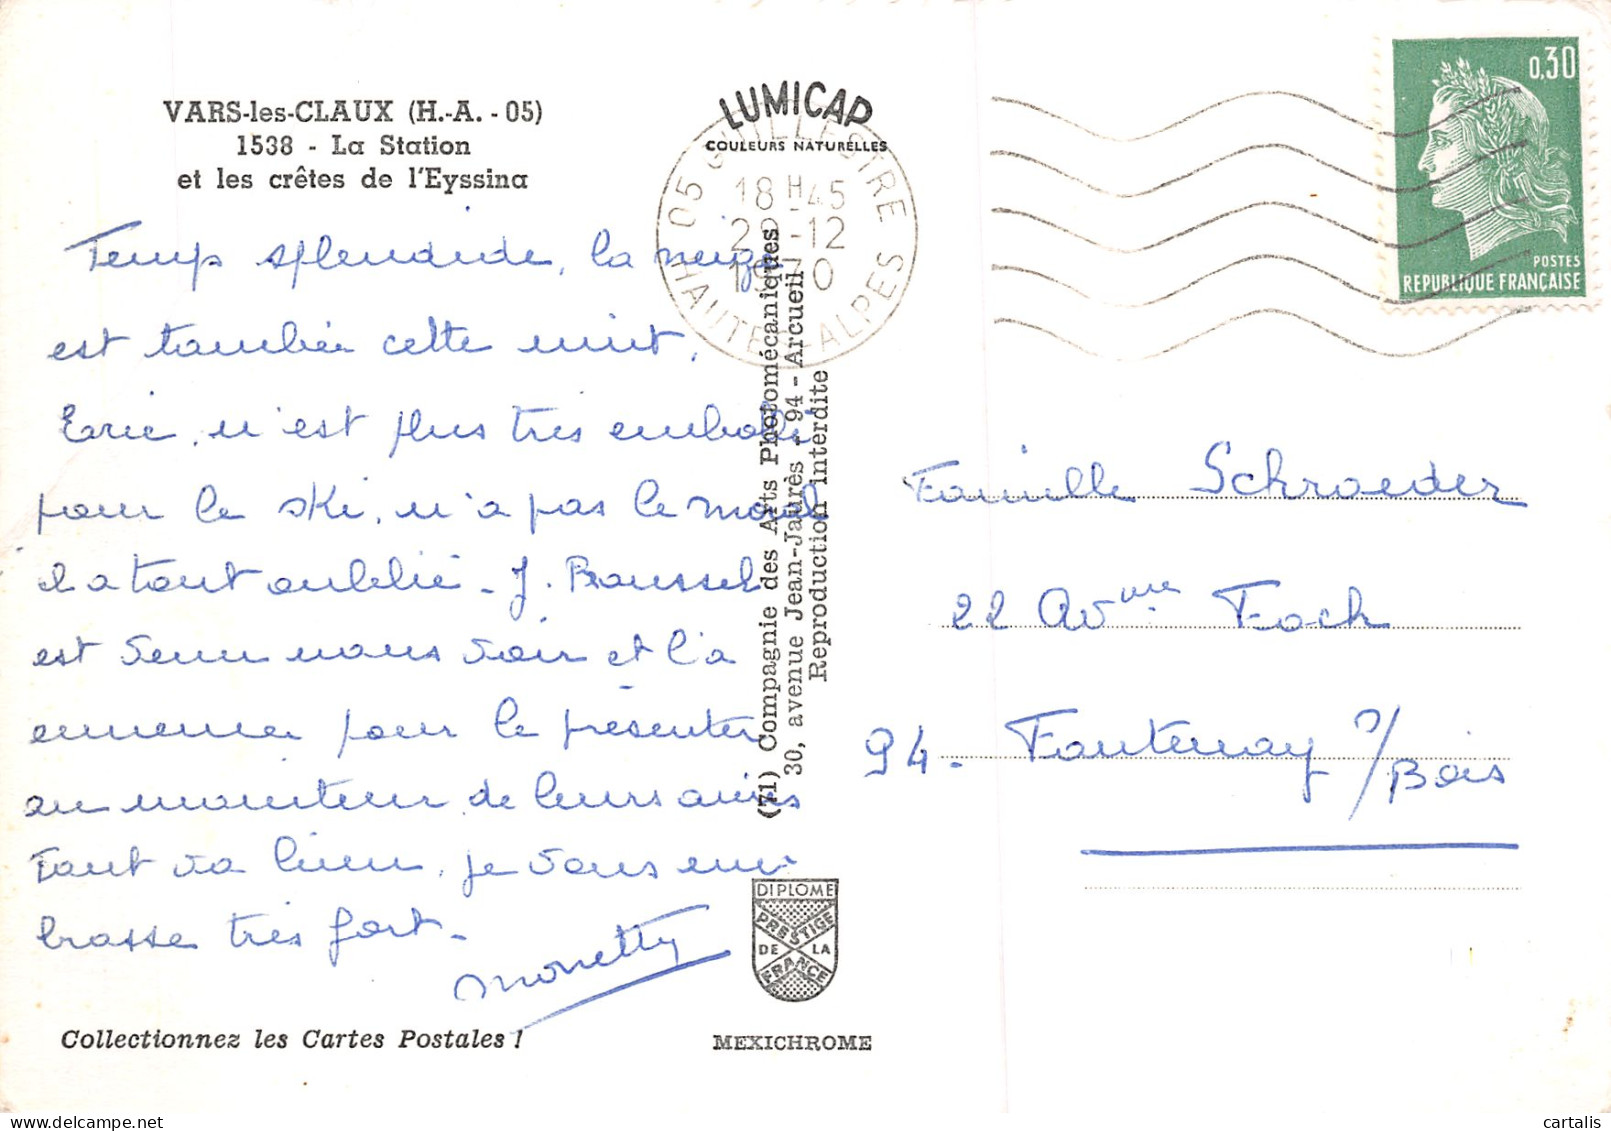 VARS-les-CLAUX (H.-A. - 05)
1538 - La Station
et les crêtes de l'Eyssina
Temps splendide, la neige
est tombée cette nuit,
Eric, n'est plus très emballé
pour le ski, n'a pas le moral
il a tout oublié - J. Roussel
est venu nous voir et l'a
emmener pour le présenter
au moniteur de leurs amis
Tout va bien, je vous em-
brasse très fort -
Monetty
Collectionnez les Cartes Postales !
LUMICAP
COULEURS NATURELLES
05 GUILLESTRE
18 H 45
29-12
1970
HAUTES ALPES
(71) Compagnie des Arts Photomécaniques
30, avenue Jean-Jaurès - 94 - Arcueil
Reproduction interdite
DIPLOME
PRESTIGE
DE LA
FRANCE
MEXICHROME
0,30
POSTES
REPUBLIQUE FRANÇAISE
Famille Schroeder
22 Avnue Foch
94 - Fontenay s/Bois
cartalis